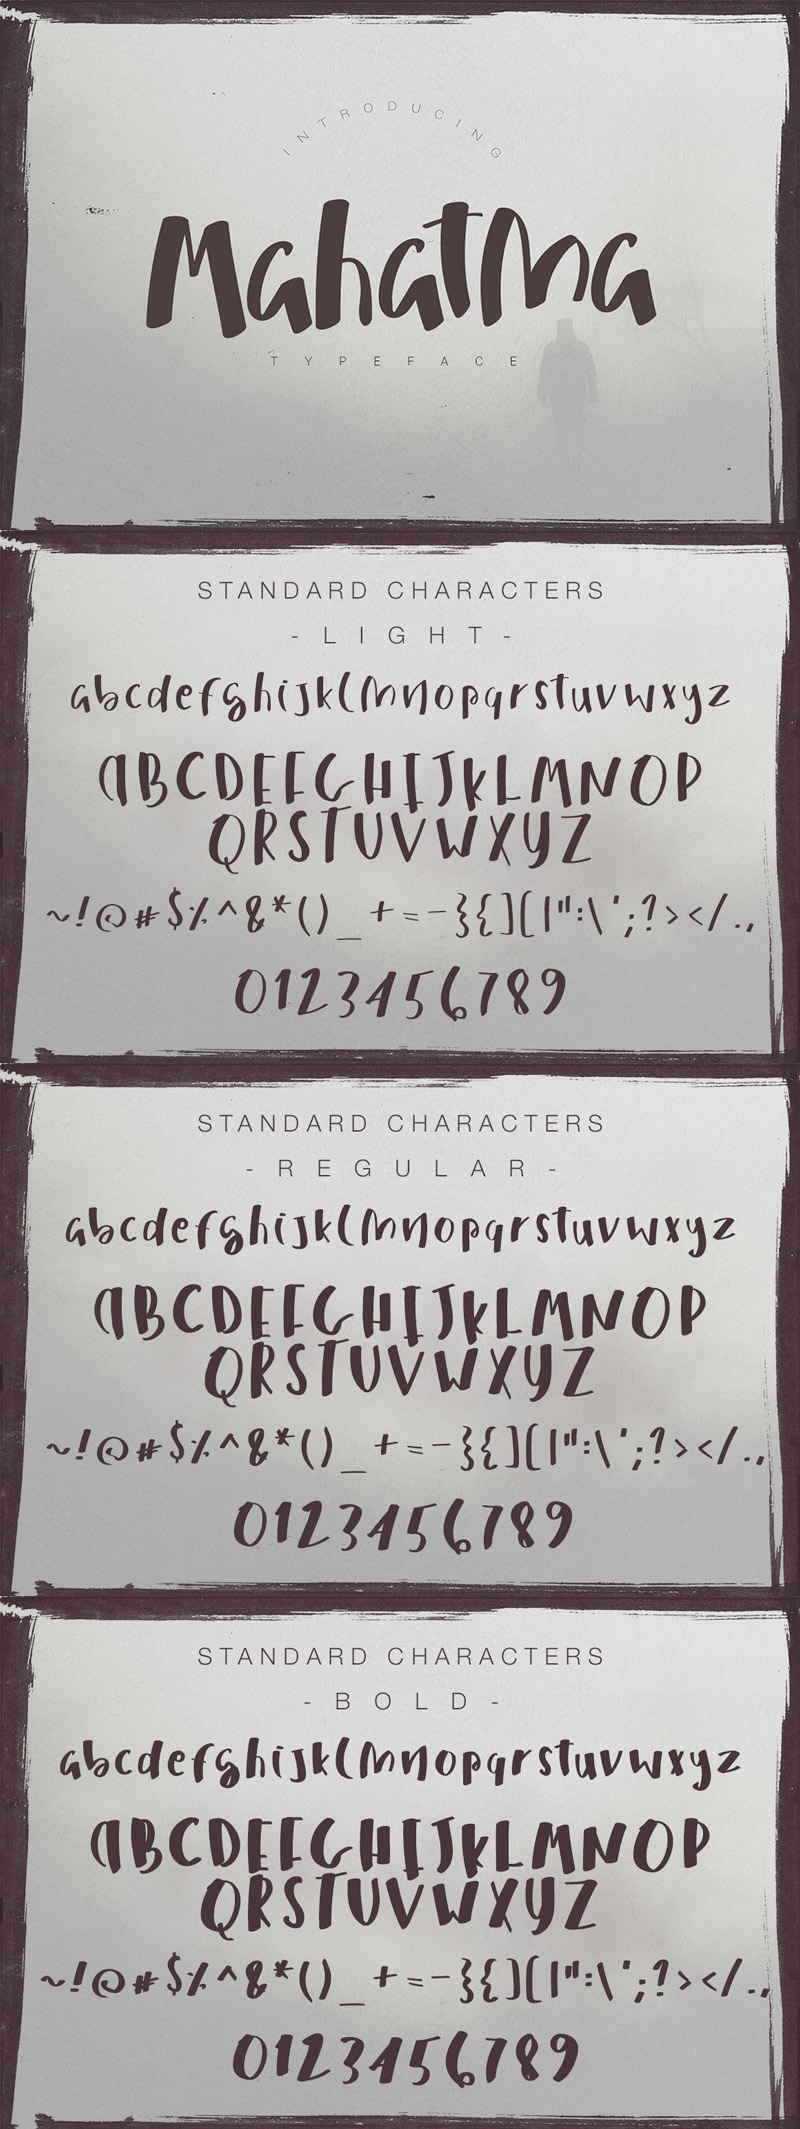 INTRODUCING
Mahatma
TYPEFACE
STANDARD CHARACTERS
- LIGHT -
abcdefghijklmnopqrstuvwxyz
ABCDEFGHIJKLMNOP
QRSTUVWXYZ
~!@#$%^&*()_+=-}{][|":\';?></.,
0123456789
STANDARD CHARACTERS
- REGULAR -
abcdefghijklmnopqrstuvwxyz
ABCDEFGHIJKLMNOP
QRSTUVWXYZ
~!@#$%^&*()_+=-}{][|":\';?></.,
0123456789
STANDARD CHARACTERS
- BOLD -
abcdefghijklmnopqrstuvwxyz
ABCDEFGHIJKLMNOP
QRSTUVWXYZ
~!@#$%^&*()_+=-}{][|":\';?></.,
0123456789